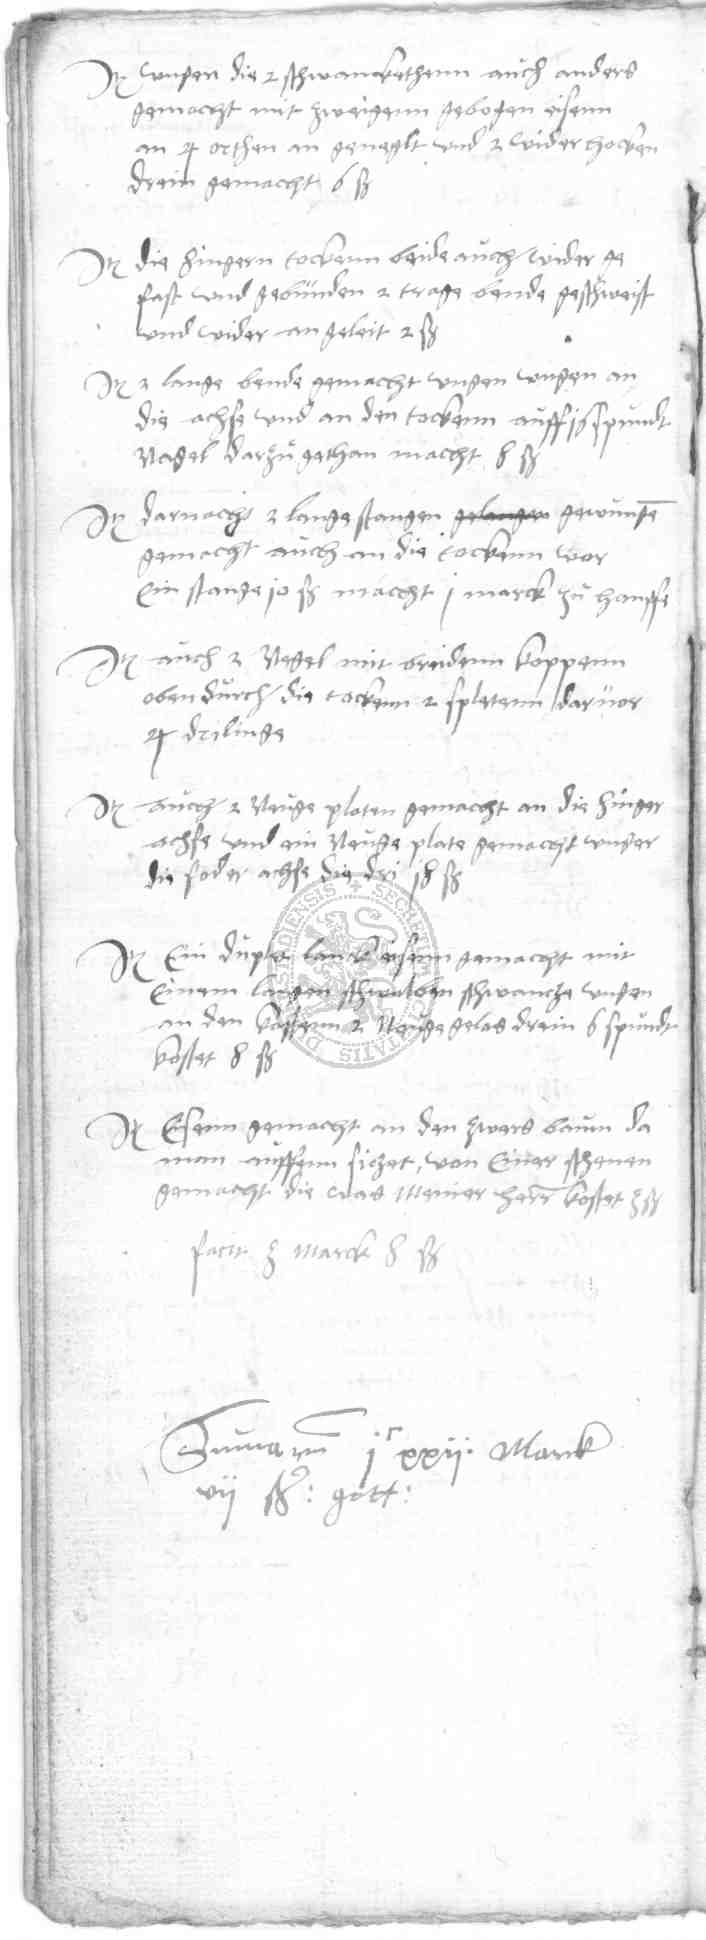 Jt vngen die 2 schwanckethenn auch anders
gemacht mit zweigenn gebogen eisenn
an 4 orthen an geneglt vnd 2 wider hocken
drein gemacht 6 ß
Jt die hingern tockenn beide auch wider ge
fast vnd gebunden 2 trage bende geschweist
vnd wider an geleit 2 ß
Jt 2 lange bende gemacht vngen vngen an
die achse vnd an den tockenn auff 16 spundt
Nagel darzu gethan macht 8 ß
Jt darnach 2 lange stangen gelangen gewungē
gemacht auch an die tockenn vor
Ein stange jo ß macht j marck zu hauffe
Jt auch 2 Negel mit breidenn koppenn
oben durch die tockenn 2 spletenn daruor
4 drilinge
Jt auch 2 Neuge platen gemacht an die hinger
achse vnd ein Neuge plate gemacht vnger
die foder achse die dri j8 ß
Jt Ein dupler lanck eisenn gemacht mit
Einem langen schwalben schwantze vngen
an den kastenn 2 Neuge gelas drein 6 spundt
kostet 8 ß
Jt Eisenn gemacht an den zwers baum da
man auffenn sitzet, von Einer schenen
gemacht die was Meiner herr kostet 3 ß
facit 3 Marck 8 ß
Summarum jc xxij Marck
vij ß: gott:
SECRETUM CIVITATIS